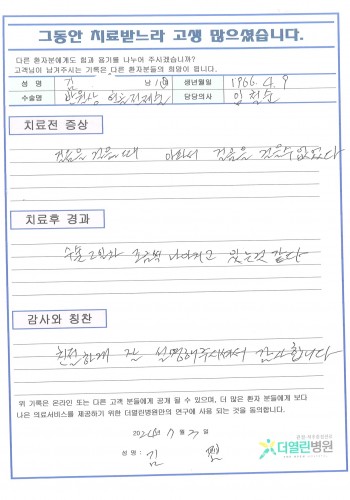 그동안 치료받느라 고생 많으셨습니다.
다른 환자분에게도 힘과 용기를 나누어 주시겠습니까?
고객님이 남겨주시는 기록은 다른 환자분들의 희망이 됩니다.
성 명 김 남 / 여 생년월일 1966. 4. 9
수술명 반월상 연골절제술 담당의사 임철순
치료전 증상
걸음을 걸을때 아파서 걸음을 걸을수 없었다
치료후 경과
수술 2일차 조금씩 나아지고 있는것 같다
감사와 칭찬
친절하게 잘 설명해주셔서 감사합니다
위 기록은 온라인 또는 다른 고객 분들에게 공개 될 수 있으며, 더 많은 환자 분들에게 보다
나은 의료서비스를 제공하기 위한 더열린병원만의 연구에 사용 되는 것을 동의합니다.
년 7월 일
성 명 : 김
더열린병원